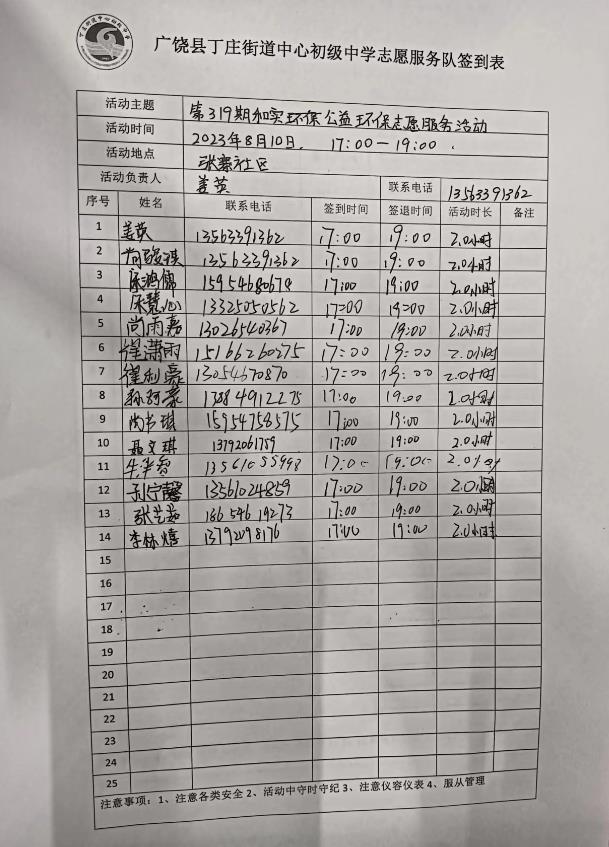 广饶县丁庄街道中心初级中学志愿服务队签到表
活动主题 第319期和实环保公益环保志愿服务活动
活动时间 2023年8月10日. 17:00—19:00.
活动地点 张寨社区
活动负责人 姜英 联系电话 13563391362
序号 姓名 联系电话 签到时间 签退时间 活动时长 备注
1 姜英 13563391362 17:00 19:00 2.0小时
2 13563391362 17:00 19:00 2.0小时
3 15954680678 17:00 19:00 2.0小时
4 13325050562 17:00 19:00 2.0小时
5 尚雨嘉 13026540367 17:00 19:00 2.0小时
6 徐潇雨 15166260275 17:00 19:00 2.0小时
7 13054670870 17:00 19:00 2.0小时
8 17:00 19:00 2.0小时
9 尚书琪 15954758575 17:00 19:00 2.0小时
10 聂文琪 13792061759 17:00 19:00 2.0小时
11 17:00 19:00 2.0小时
12 孙宁馨 13561024859 17:00 19:00 2.0小时
13 张艺茹 18654619273 17:00 19:00 2.0小时
14 李林熺 13792098176 17:00 19:00 2.0小时
15
16
17
18
19
20
21
22
23
24
25
注意事项：1、注意各类安全 2、活动中守时守纪 3、注意仪容仪表 4、服从管理